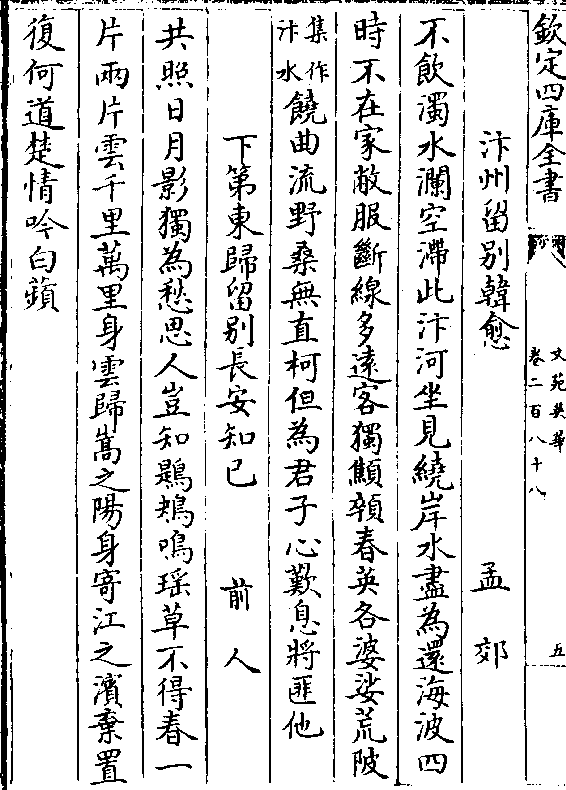 欽定四庫全書
文苑英華
卷二百八十八
五
汴州留别韓愈
孟郊
不飲濁水瀾空滯此汴河坐見繞岸水盡為還海波四
時不在家敝服斷線多遠客獨顦顇春英各婆娑荒陂
集作
汴水
饒曲流野桑無直柯但為君子心歎息將匪他
下第東歸留别長安知已
前人
共照日月影獨為愁思人豈知鶗鴂鳴瑶草不得春一
片兩片雲千里萬里身雲歸嵩之陽身寄江之濱棄置
復何道楚情吟白蘋